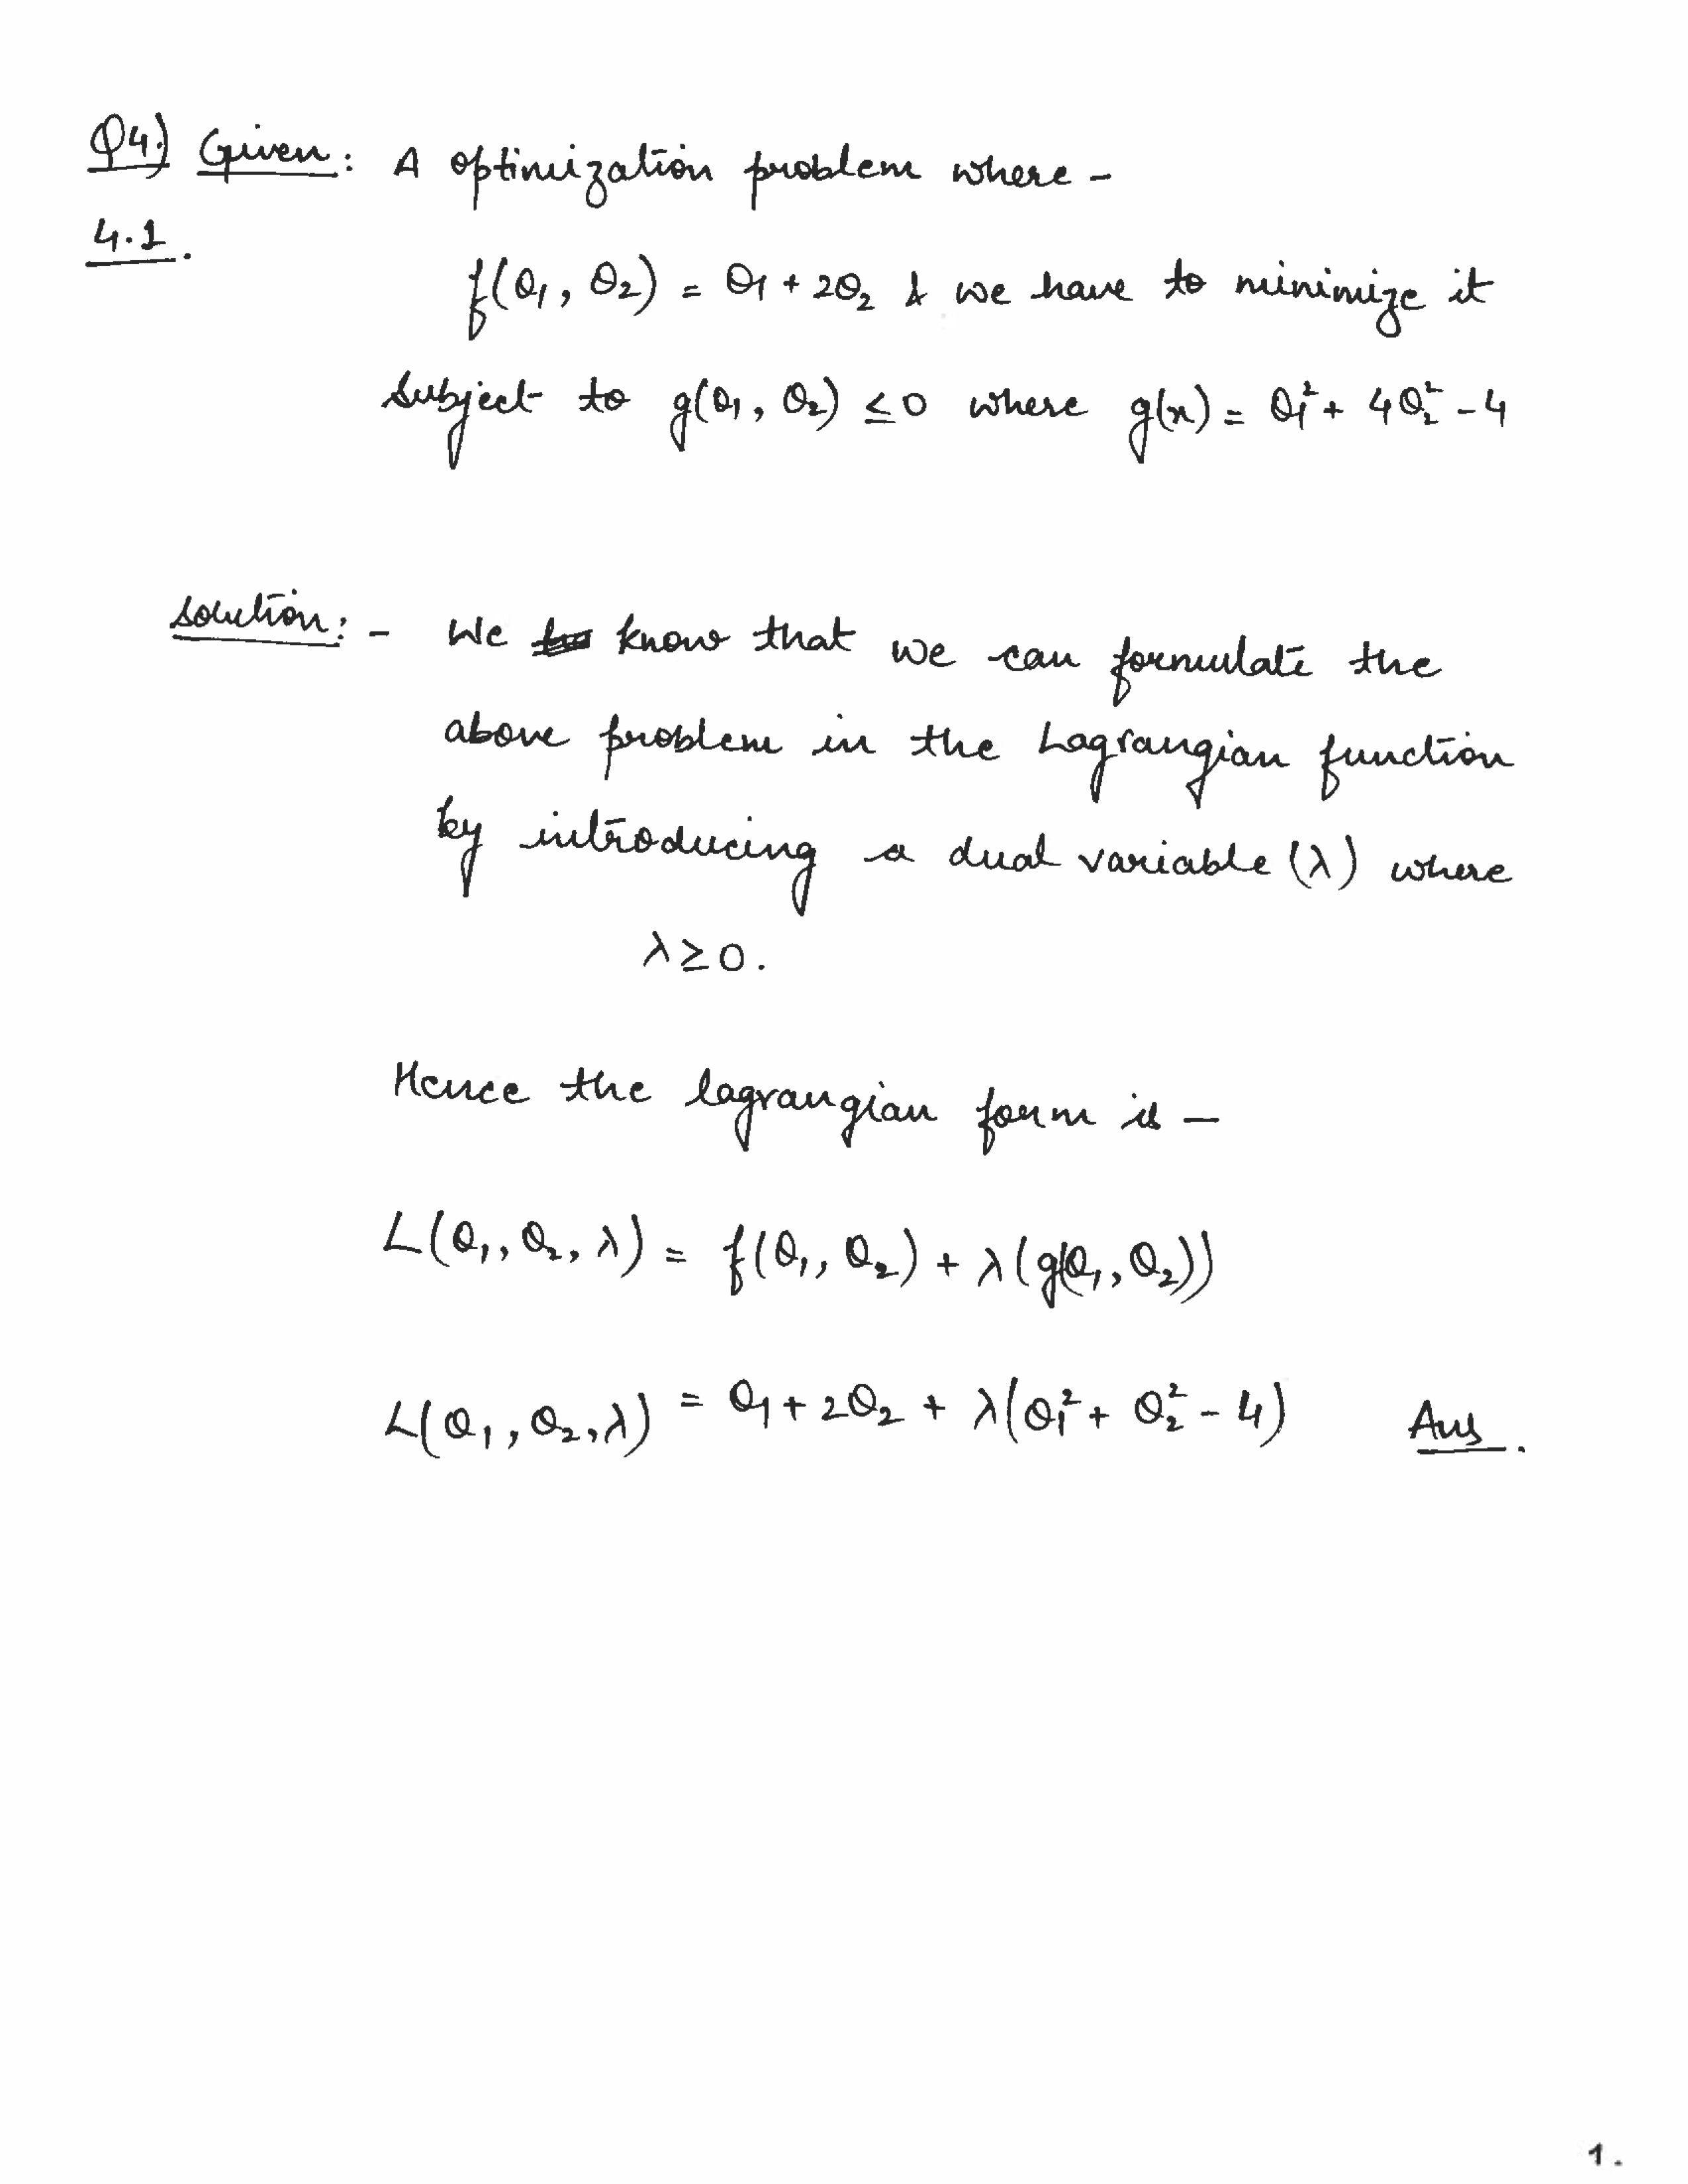 Q4.) Given: A optimization problem where -
4.1.
f(θ₁, θ₂) = θ₁ + 2θ₂ & we have to minimize it
subject to g(θ₁, θ₂) ≤ 0 where g(x) = θ₁² + 4θ₂² - 4
solution: - We know that we can formulate the
above problem in the Lagrangian function
by introducing a dual variable (λ) where
λ ≥ 0.
Hence the lagrangian form is -
L(θ₁, θ₂, λ) = f(θ₁, θ₂) + λ(g(θ₁, θ₂))
L(θ₁, θ₂, λ) = θ₁ + 2θ₂ + λ(θ₁² + θ₂² - 4) Ans.
1.